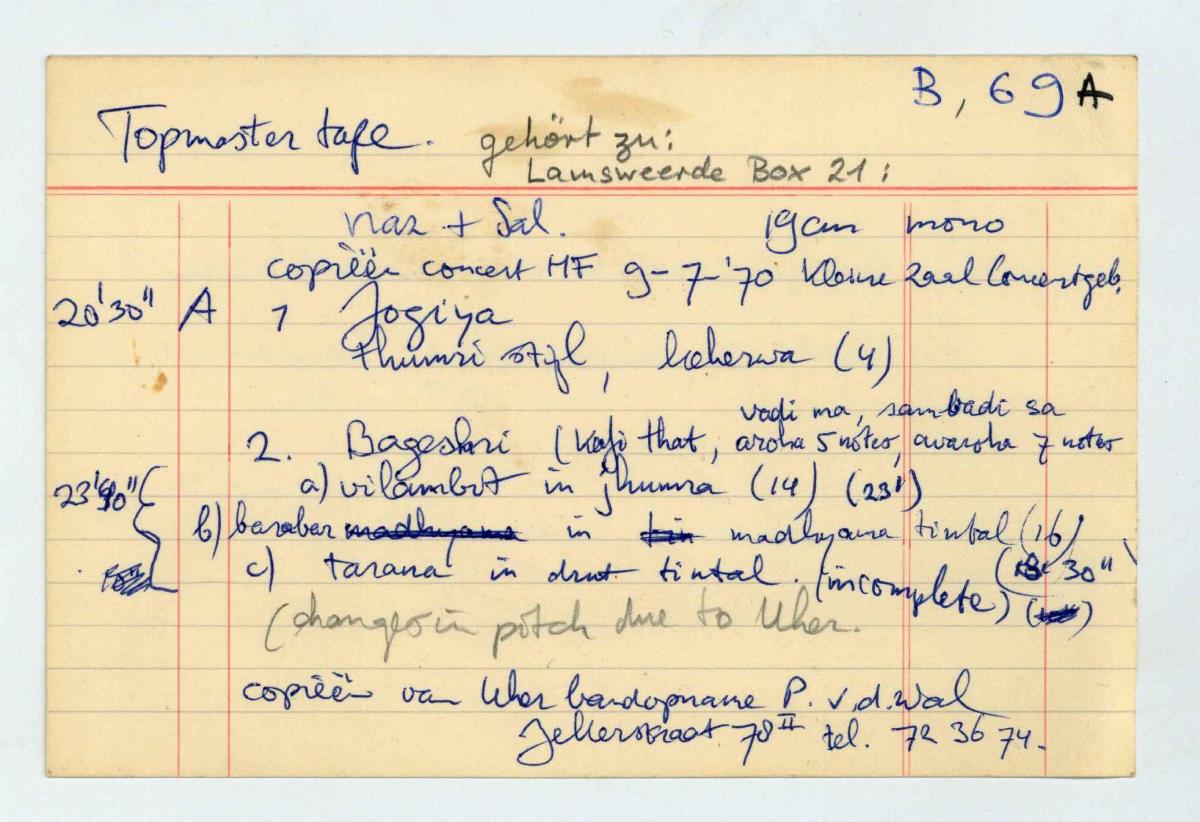 B, 69 A
Topmaster tape. gehört zu:
Lamsweerde Box 21:
Naz + Sal. 19cm mono
copiëën concert HF 9-7-'70 Kleine Zaal Concertgeb.
20'30" A 1 Jogiya
thumri stijl, kaherwa (4)
vadi ma, sambadi sa
2. Bageshri (Kafi that, aroha 5 notes, avaroha 7 notes
23' a) vilambit in jhumra (14) (23')
b) barabar madhyama in tin madhyama tintal (16)
c) tarana in drut tintal. (incomplete) 30"
(changes in pitch due to Uher.
copiëën van Uher bandopname P. v.d. Wal
Jekerstraat 78 II tel. 72 36 74.